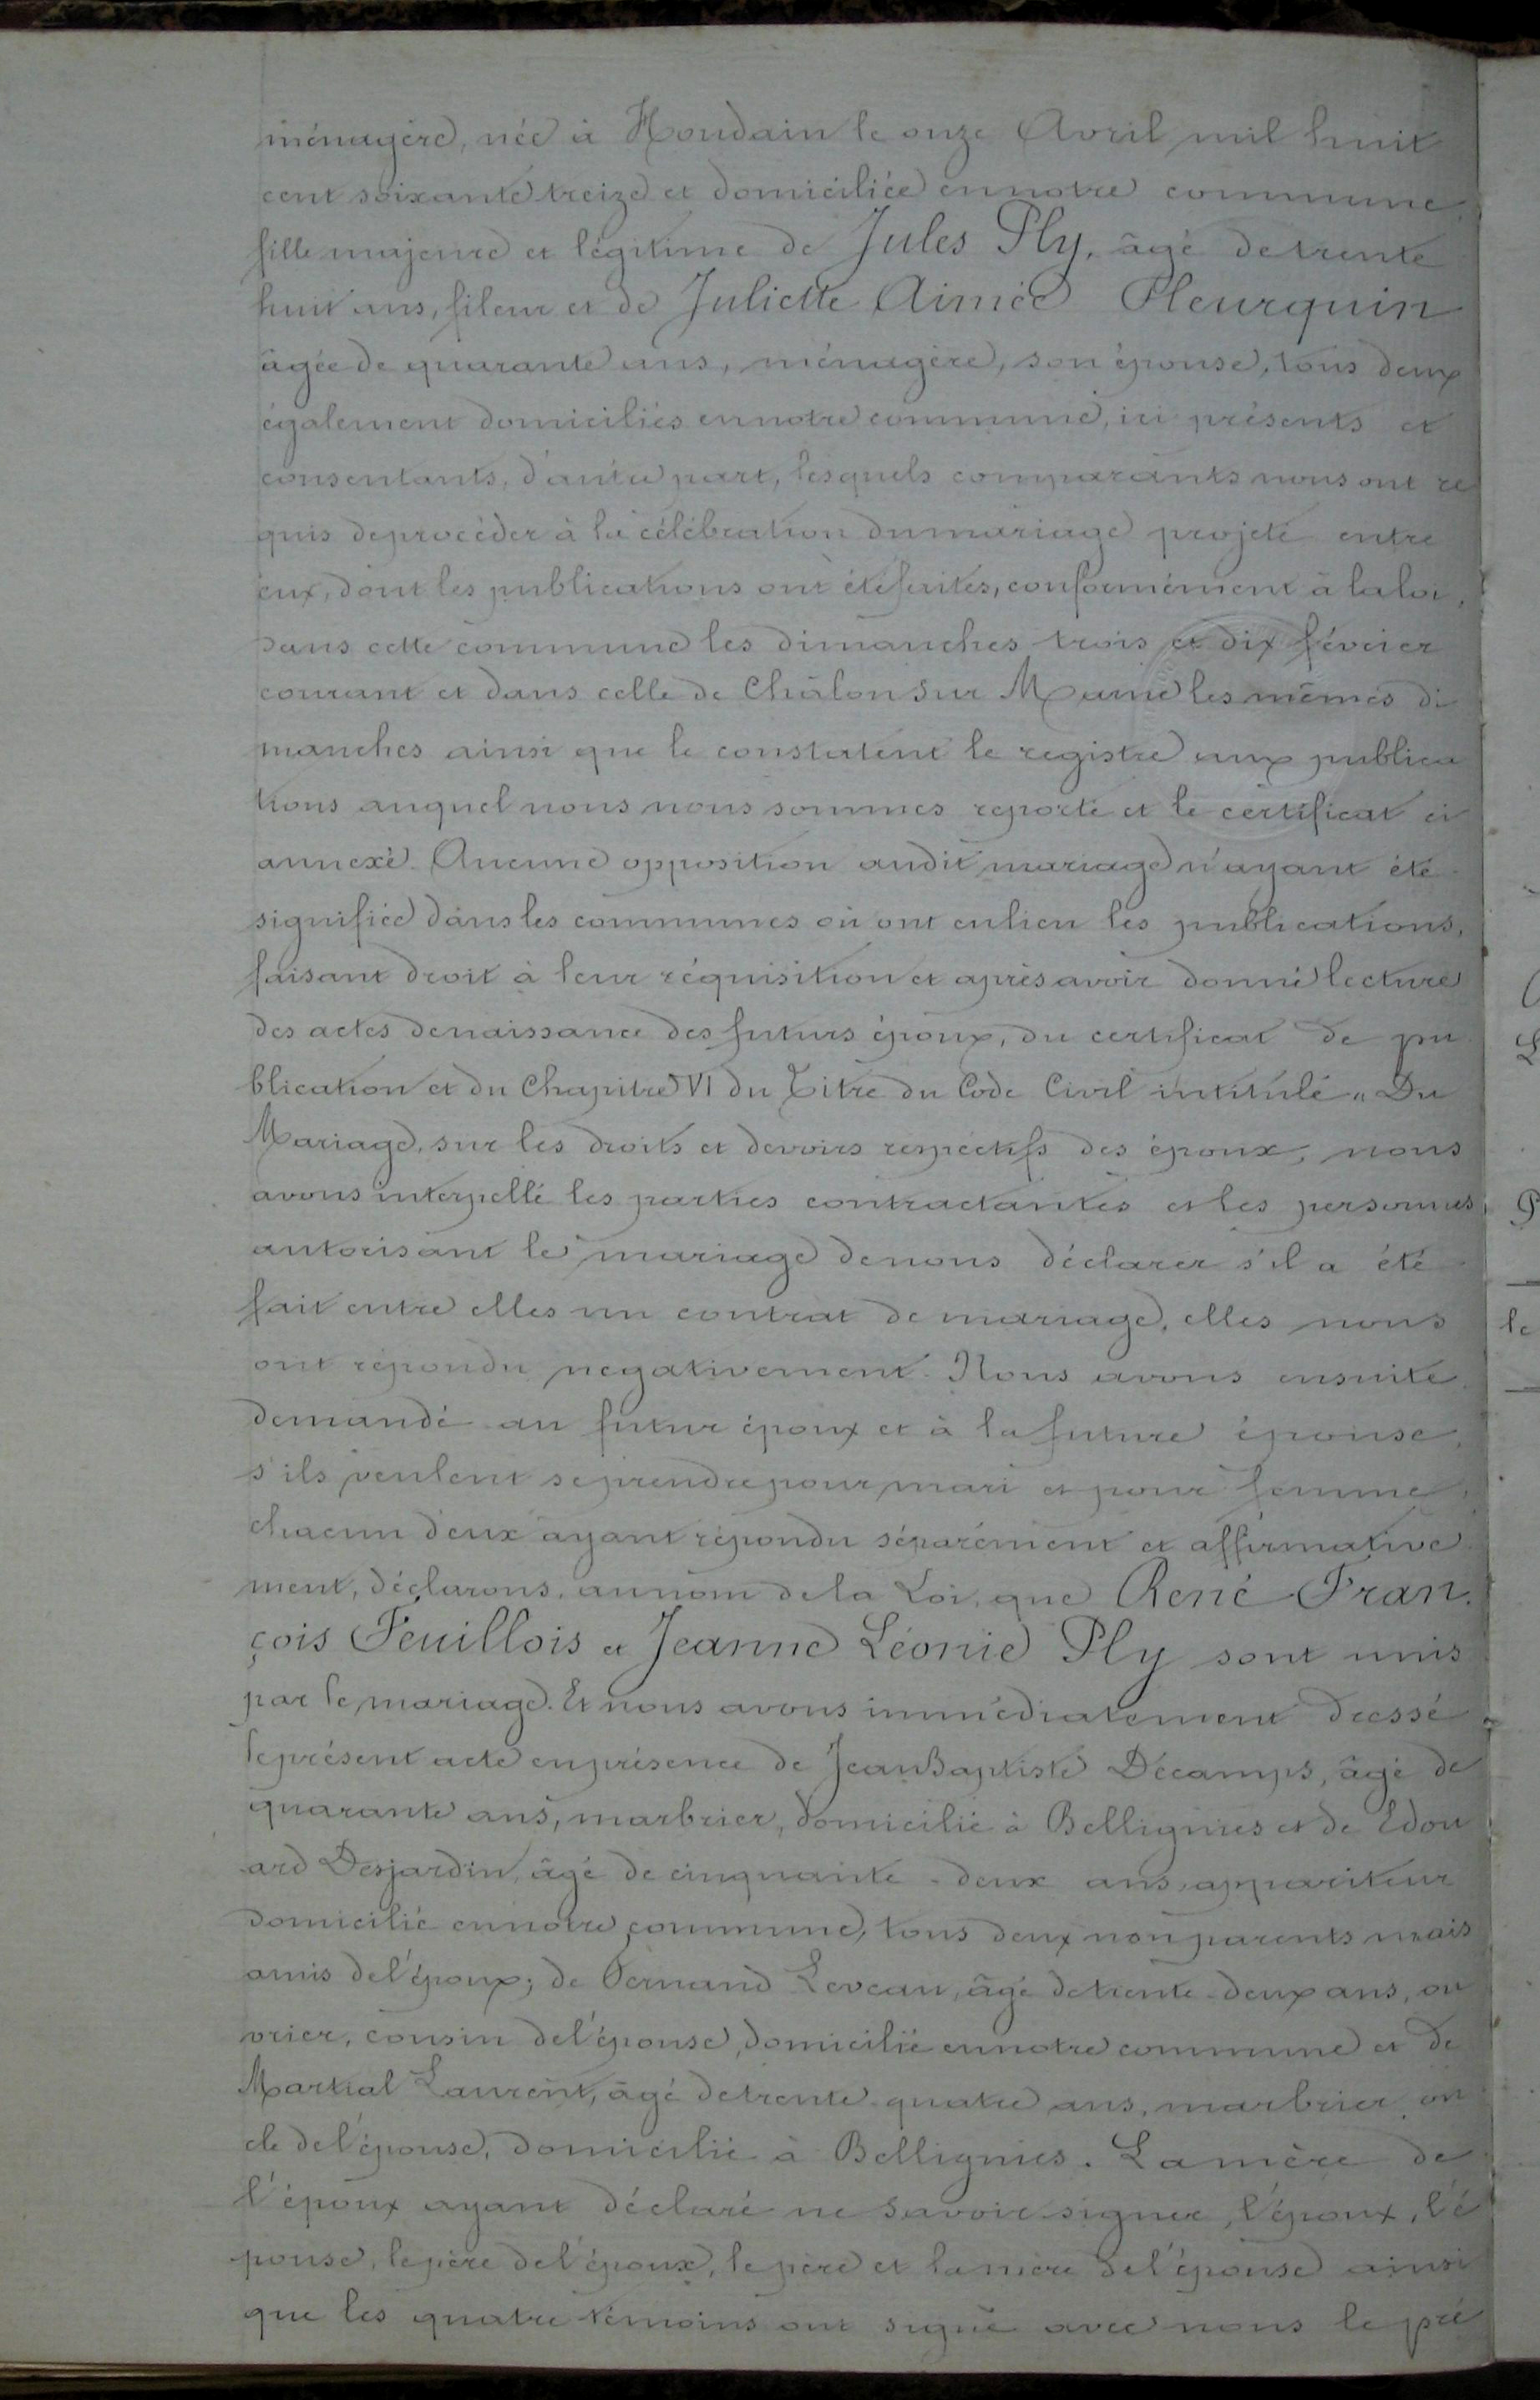 ménagère, née à Houdain le onze Avril mil huit
cent soixante treize et domiciliée en notre commune,
fille majeure et légitime de Jules Ply, âgé de trente
huit ans, fileur et de Juliette Aimée Fleurquin
âgée de quarante ans, ménagère, son épouse, tous deux
également domiciliés en notre commune, ici présents et
consentants, d'autre part, lesquels comparants nous ont re
quis de procéder à la célébration du mariage projeté entre
eux, dont les publications ont été faites, conformément à la loi,
dans cette commune les dimanches trois et dix février
courant et dans celle de Châlon sur Marne les mêmes di
manches ainsi que le constatent le registre aux publica
tions auquel nous nous sommes reporté et le certificat ci
annexé. Aucune opposition audit mariage n'ayant été
signifiée dans les communes où ont eu lieu les publications,
faisant droit à leur réquisition et après avoir donné lecture
des actes de naissance des futurs époux, du certificat de pu
blication et du Chapitre VI du Titre du Code Civil intitulé " Du
Mariage, sur les droits et devoirs respectifs des époux, nous
avons interpellé les parties contractantes et les personnes
autorisant le mariage de nous déclarer s'il a été
fait entre elles un contrat de mariage, elles nous
ont répondu negativement. Nous avons ensuite
demandé au futur époux et à la future épouse,
s'ils veulent se prendre pour mari et pour femme,
chacun d'eux ayant répondu séparément et affirmative
ment, déclarons, au nom de la Loi, que René Fran
çois Feuillois et Jeanne Léonie Ply sont unis
par le mariage. Et nous avons immédiatement dressé
le présent acte en présence de Jean Baptiste Décamps, âgé de
quarante ans, marbrier, domicilié à Bellignies et de Edou
ard Desjardin, âgé de cinquante-deux ans, appariteur
domicilié en notre commune, tous deux non parents mais
amis de l'époux; de Fernand Leveau, âgé de trente-deux ans, ou
vrier, cousin de l'épouse, domicilié en notre commune et de
Martial Laurent, âgé de trente-quatre ans, marbrier, on
cle de l'épouse, domicilié à Bellignies. La mère de
l'époux ayant déclaré ne savoir signer, l'époux, l'é
pouse, le père de l'époux, le père et la mère de l'épouse ainsi
que les quatre témoins ont signé avec nous le pré